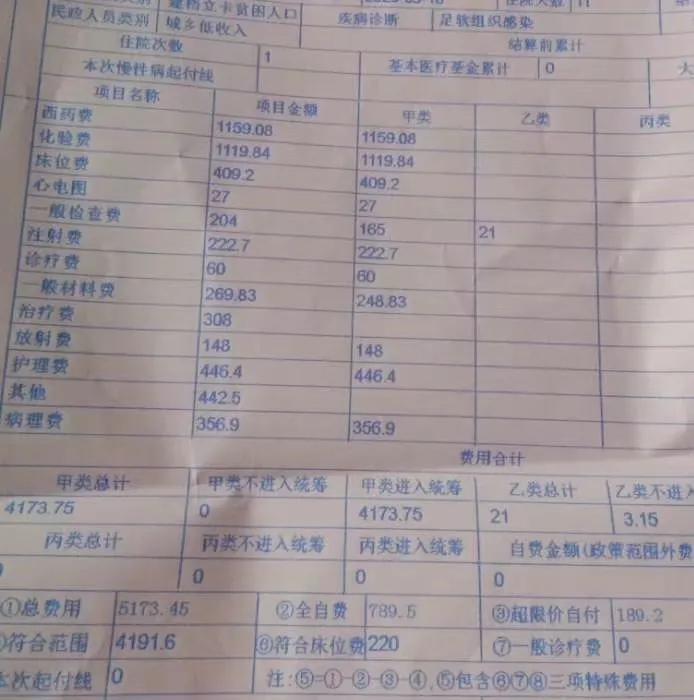 建档立卡贫困人口 住院天数 11
民政人员类别 城乡低收入 疾病诊断 足软组织感染
住院次数 1 结算前累计
本次慢性病起付线 基本医疗基金累计 0 大
项目名称 项目金额 甲类 乙类 丙类
西药费 1159.08 1159.08
化验费 1119.84 1119.84
床位费 409.2 409.2
心电图 27 27
一般检查费 204 165 21
注射费 222.7 222.7
诊疗费 60 60
一般材料费 269.83 248.83
治疗费 308
放射费 148 148
护理费 446.4 446.4
其他 442.5
病理费 356.9 356.9
费用合计
甲类总计 甲类不进入统筹 甲类进入统筹 乙类总计 乙类不进入
4173.75 0 4173.75 21 3.15
丙类总计 丙类不进入统筹 丙类进入统筹 自费金额(政策范围外费
0 0 0 0
①总费用 5173.45 ②全自费 789.5 ③超限价自付 189.2
符合范围 4191.6 ⑥符合床位费 220 ⑦一般诊疗费 0
本次起付线 0 注:⑤=①-②-③-④,⑤包含⑥⑦⑧三项特殊费用